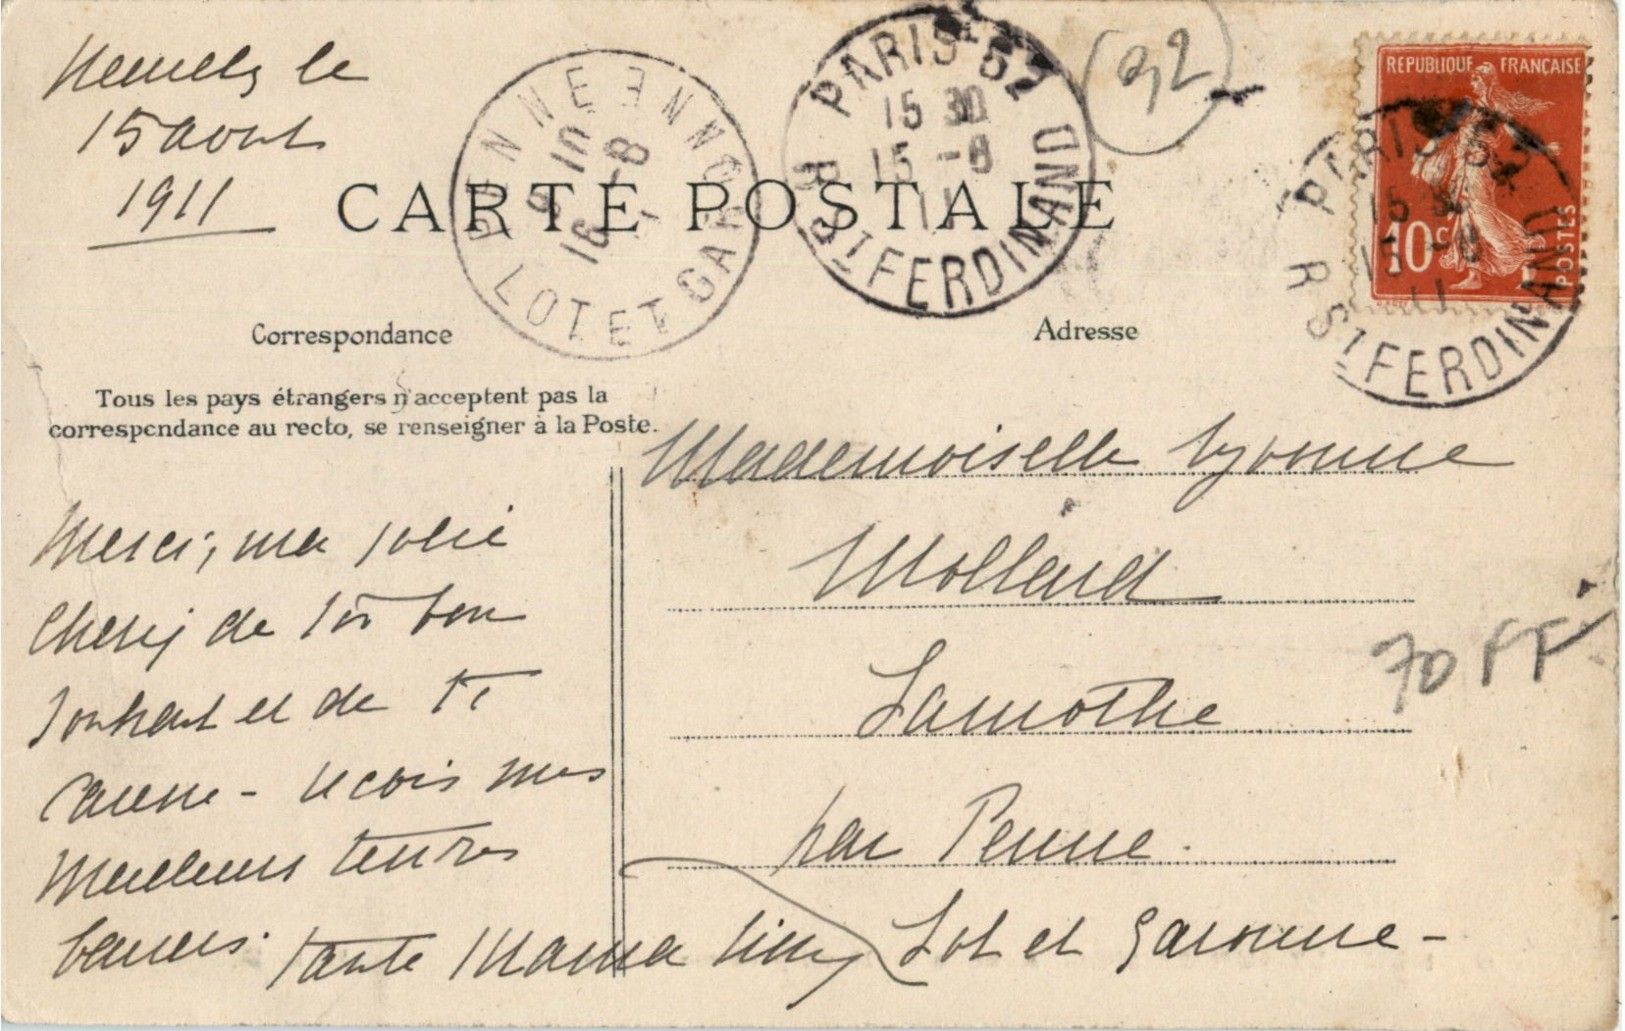 Neuilly le
15 aout
1911
PENNE
LOT ET GARONNE
16 -8
PARIS 52
15 30
15 -8
11
R. St FERDINAND
92
REPUBLIQUE FRANÇAISE
10c
POSTES
PARIS 52
15 30
15 -8
11
R. St FERDINAND
CARTE POSTALE
Correspondance
Adresse
Tous les pays étrangers n'acceptent pas la
correspondance au recto, se renseigner à la Poste.
Merci, ma jolie
Cherie de ton bon
souhait et de ta
caresse - recois mes
meilleurs tendres
baisers. Tante Mama Lilly
Mademoiselle Yvonne
Mollard
Lamothe
par Penne.
Lot et Garonne -
70 FF